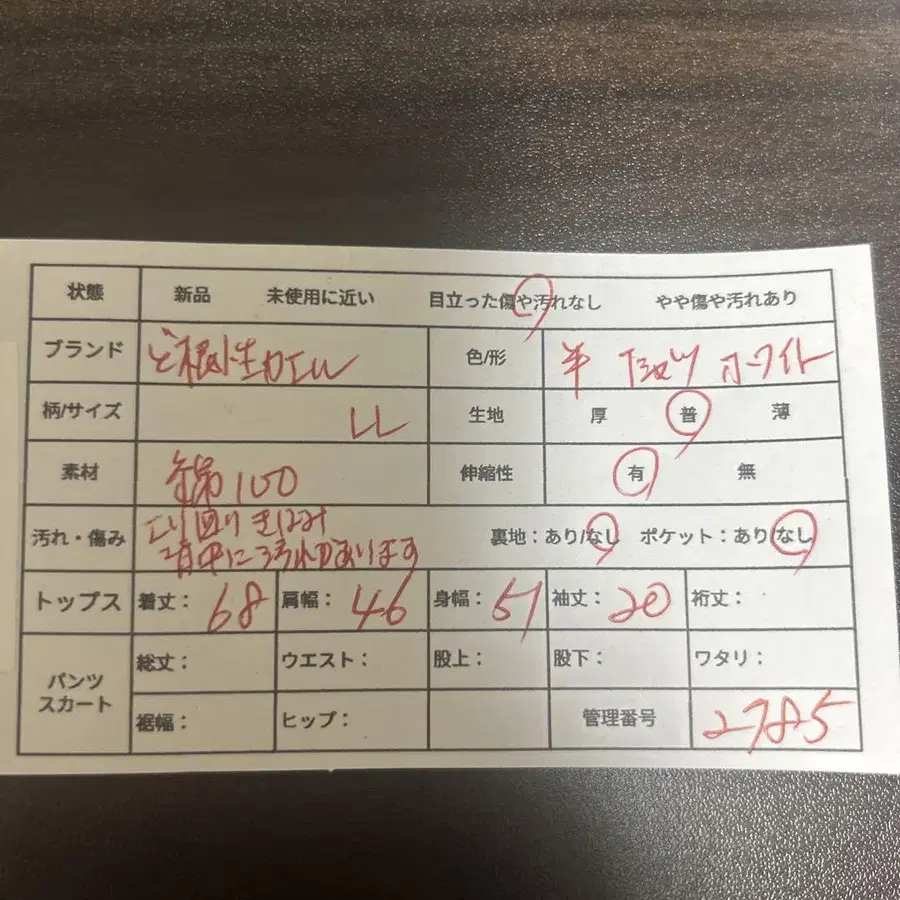 状態 新品 未使用に近い 目立った傷や汚れなし やや傷や汚れあり
ブランド ど根性カエル 色/形 半 Tシャツ ホワイト
柄/サイズ LL 生地 厚 普 薄
素材 綿100 伸縮性 有 無
汚れ・傷み えり回りきばみ
背中に汚れがあります
裏地：あり/なし ポケット：あり/なし
トップス 着丈：68 肩幅：46 身幅：51 袖丈：20 裄丈：
パンツ
スカート
総丈： ウエスト： 股上： 股下： ワタリ：
裾幅： ヒップ： 管理番号 2785